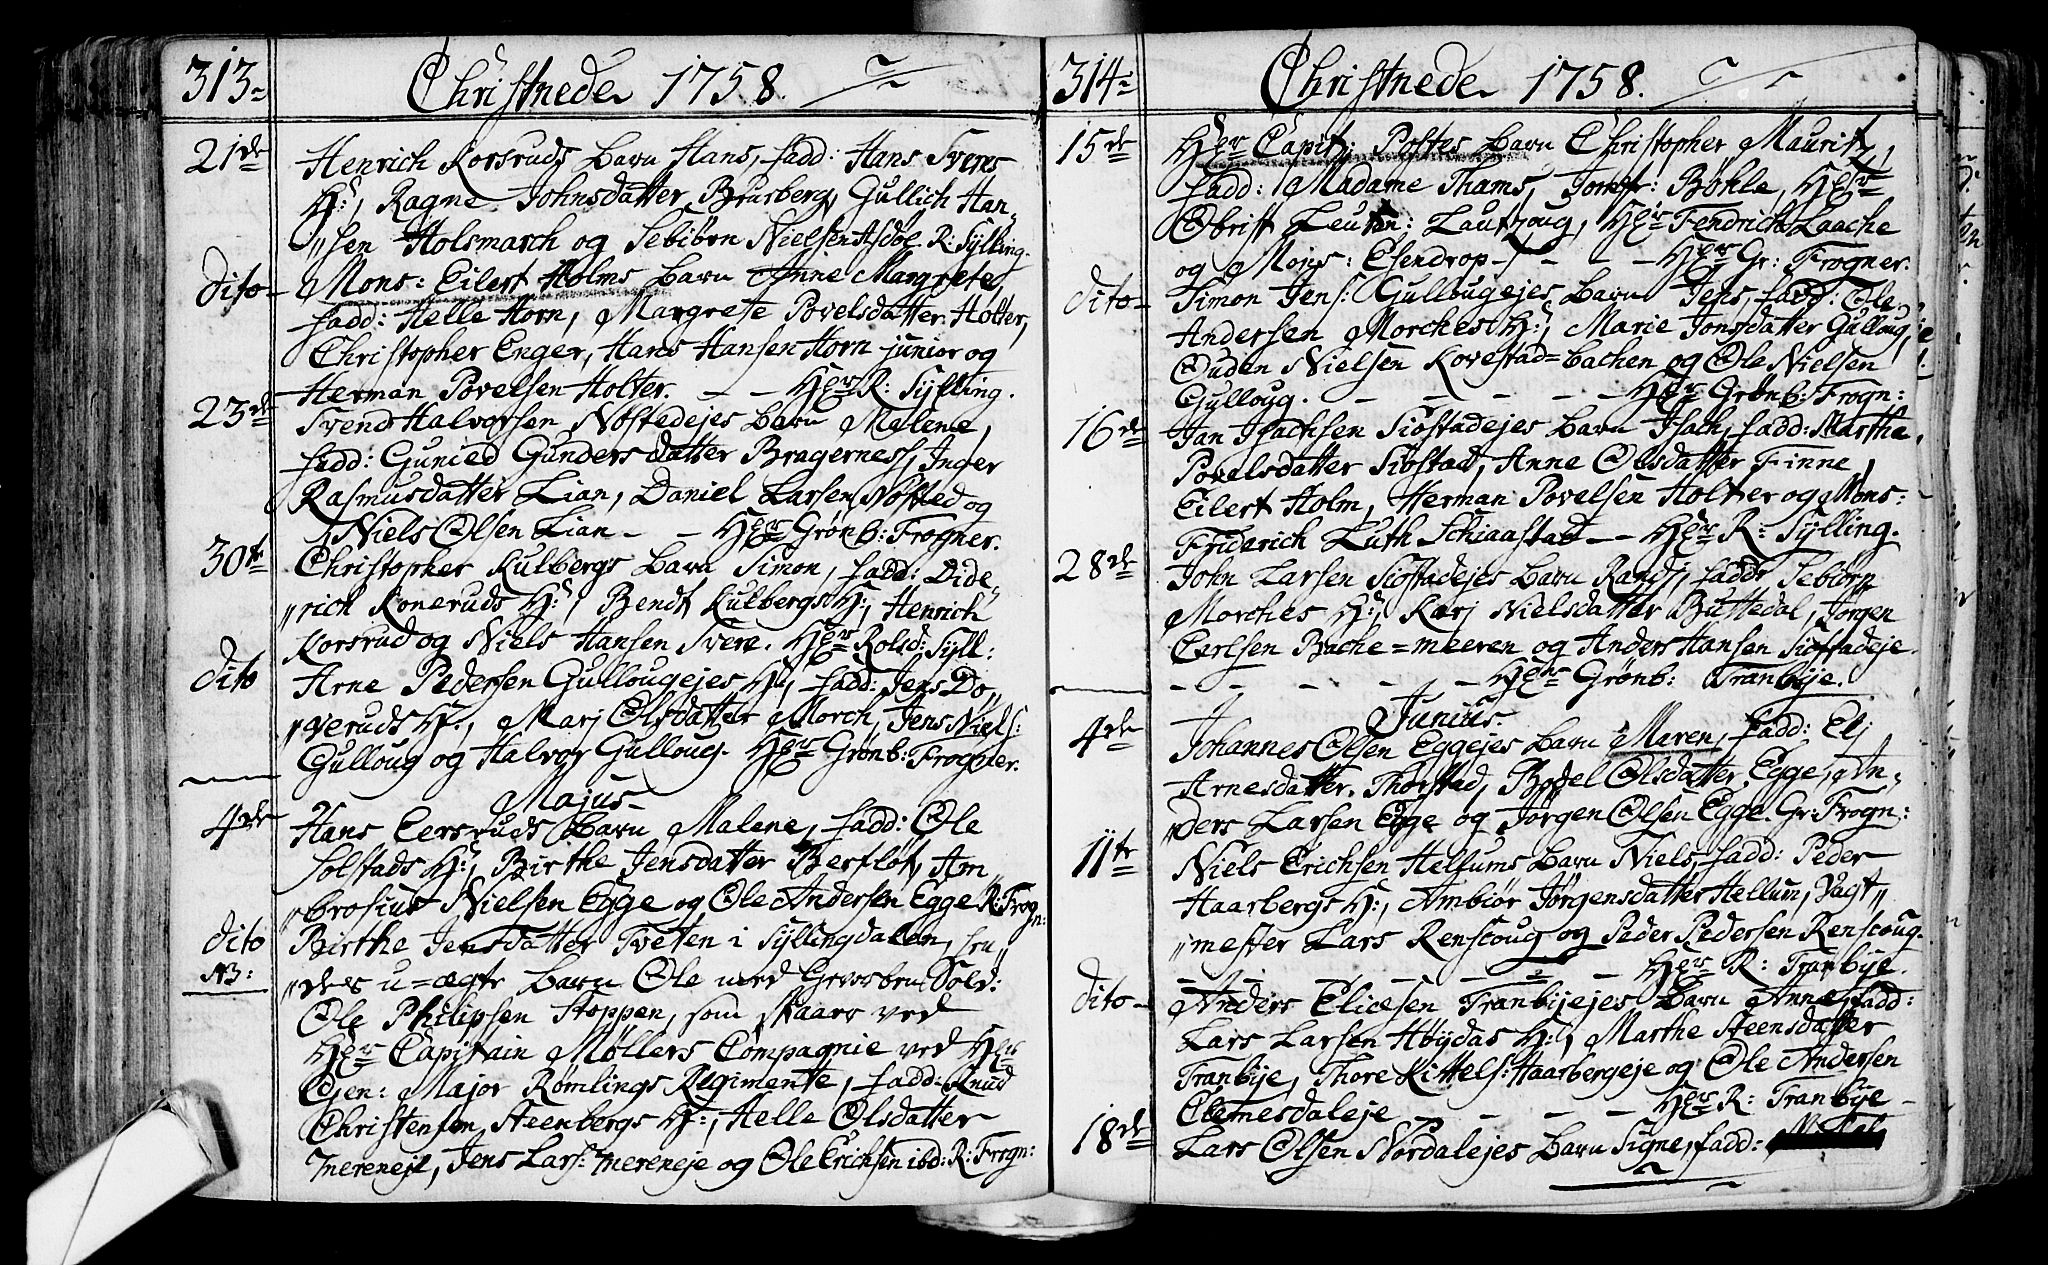 313
Christnede 1758.
21de Henrich Korsruds barn Hans, fadd: Hans Sveres
H:, Ragne Johnsdatter Brusberg, Gullich Han-
"sen Holsmarch og Sebiörn Nielsen Asdöl. R: Sylling.
dito Mons: Eilert Holms barn Anne Margrete,
fadd: Helle Horn, Margrete Povelsdatter Holter,
Christopher Enger, Hans Hansen Horn junior og
Herman Povelsen Holter. - - Her R: Sylling.
23de Svend Halvorsen Nöstedejes barn Malene,
fadd: Gunied Gunders datter Bragernes, Inger
Rasmusdatter Lian, Daniel Larsen Nösted og
Niels Olsen Lian - - Her Grönb: Frogner.
30te Christopher Kulbergs barn Simon, fadd: Dide-
"rich Koneruds H:, Bendt Kulbergs H:, Henrich
Korsrud og Niels Hansen Svere. Her Rolsd: Syll:
dito Arne Pedersen Gullougejes H:, fadd: Jens Do-
"veruds H:, Marj Olsdatter Morch, Jens Niels:
Gulloug og Halvor Gulloug. Her Grönb: Frogner.
Majus
4de Hans Eersruds barn Malene, fadd: Ole
Solstads H:, Birthe Jensdatter Berflöt, Am
"brosius Nielsen Egge og Ole Andersen Egge R: Frogn:
dito Birthe Jensdatter Tveten i Syllingdalen, hen
NB: "des u=ægte barn Ole med Gevorben Sold:
Ole Philipsen Hoppen, som staaer ved
Her Capitain Möllers Compagnie ved Her
Gen: Major Römlings Regimente, fadd: Knud
Christensen Steenbergs H:, Helle Olsdatter
Mereneje, Jens Lars: Mereneje og Ole Erichsen ibd: R: Frogn:
314
Christnede 1758.
15de Her Capit: Poltes barn Christopher Mauritz,
fadd: Madame Thams, Jomfr: Böhle, Her
Obrist Leuten: Lautzoug, Her Fendrich Laache
og Mons: Esendrop - - - Her Gr: Frogner.
dito Simon Jens: Gullougejes barn Jens, fadd: Ole
Andersen Morches H:, Marie Jonsdatter Gulloug,
Ouden Nielsen Kovestad=bachen og Ole Nielsen
Gulloug. - - - - - Her Grönb: Frogn:
16de Jan Isachsen Siöstadejes barn Isach, fadd: Marthe
Povelsdatter Siöstad, Anne Olsdatter Finne,
Eilert Holm, Herman Povelsen Holter og Mons:
Friderich Luth Schiaastad - - Her R: Sylling.
28de John Larsen Siöstadejes barn Randj, fadd: Sebiörn
Morches H:, Karj Nielsdatter Buttedal, Jörgen
Cerlsen Bache=meeren og Anders Hansen Siöstadeje.
- - - - - Her Grönb: Tranbye.
Junius.
4de Johannes Olsen Eggejes barn Maren, fadd: Elj
Arnesdatter Thorstad, Bodel Olsdatter Egge, An-
"ders Larsen Egge og Jörgen Olsen Egge. Gr: Frogn:
11te Niels Erichsen Hellums barn Niels, fadd: Peder
Haarbergs H:, Ambiör Jörgensdatter Hellum, Vagt"
"mester Lars Renscoug og Peder Pedersen Renscoug.
- - - - - Her R: Tranbye.
dito Anders Elicesen Tranbyejes barn Anne, fadd:
Lars Larsen Höydas H:, Marthe Steensdatter
Tranbye, Thore Kittels: Haarbergeje og Ole Andersen
Clemesdaleje - - - - Her R: Tranbye
18de Lars Olsen Nordalejes barn Signe, fadd: